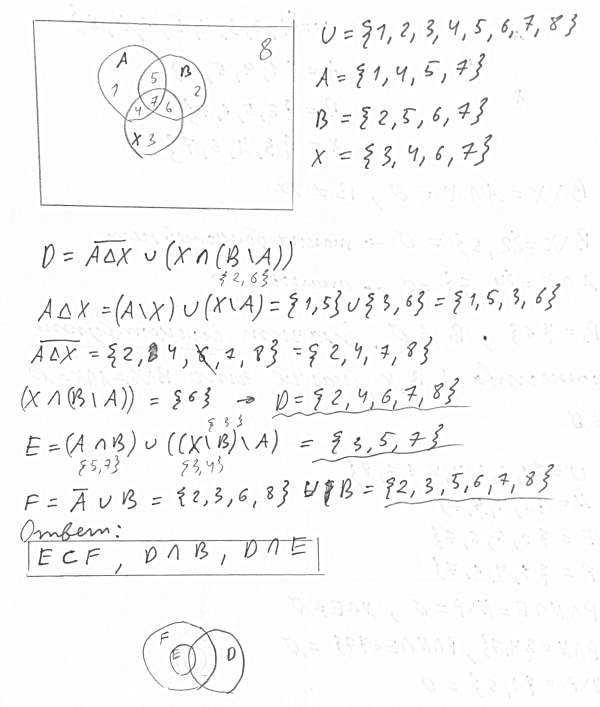 8
U = {1, 2, 3, 4, 5, 6, 7, 8}
A
5
B
1
7
2
4
6
X 3
A = {1, 4, 5, 7}
B = {2, 5, 6, 7}
X = {3, 4, 6, 7}
D = \overline{A Δ X} ∪ (X ∩ (B \ A))
{2, 6}
A Δ X = (A \ X) ∪ (X \ A) = {1, 5} ∪ {3, 6} = {1, 5, 3, 6}
\overline{A Δ X} = {2, 4, 7, 8} = {2, 4, 7, 8}
(X ∩ (B \ A)) = {6} → D = {2, 4, 6, 7, 8}
{3}
E = (A ∩ B) ∪ ((X \ B) \ A) = {3, 5, 7}
{5, 7} {3, 4}
F = \overline{A} ∪ B = {2, 3, 6, 8} ∪ B = {2, 3, 5, 6, 7, 8}
Ответ:
E ⊂ F , D ∩ B , D ∩ E
F
E
D